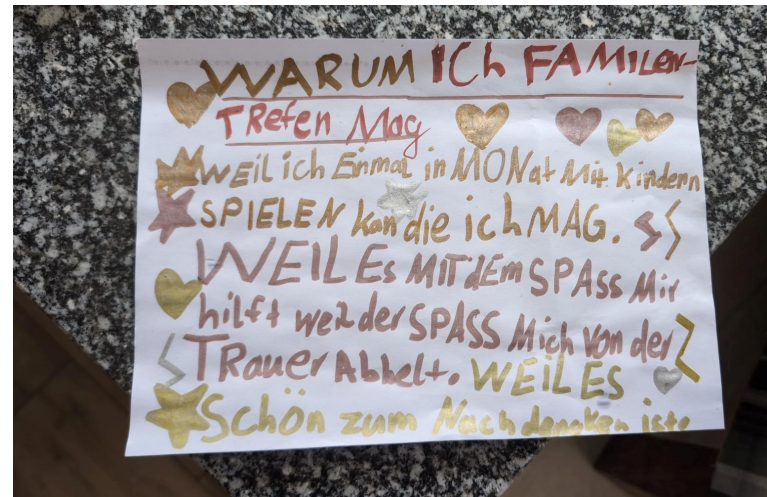 WARUM ICh FAMILEN-
TRefen Mag
WEil ich Einmal in MONat Mit Kindern
SPIELEN kan die ich MAG.
WEIL Es MIT dEm SPAss Mir
hilft weil der SPASS Mich Von der
TRauer Abhelt. WEIL ES
Schön zum Nachdenken ist.